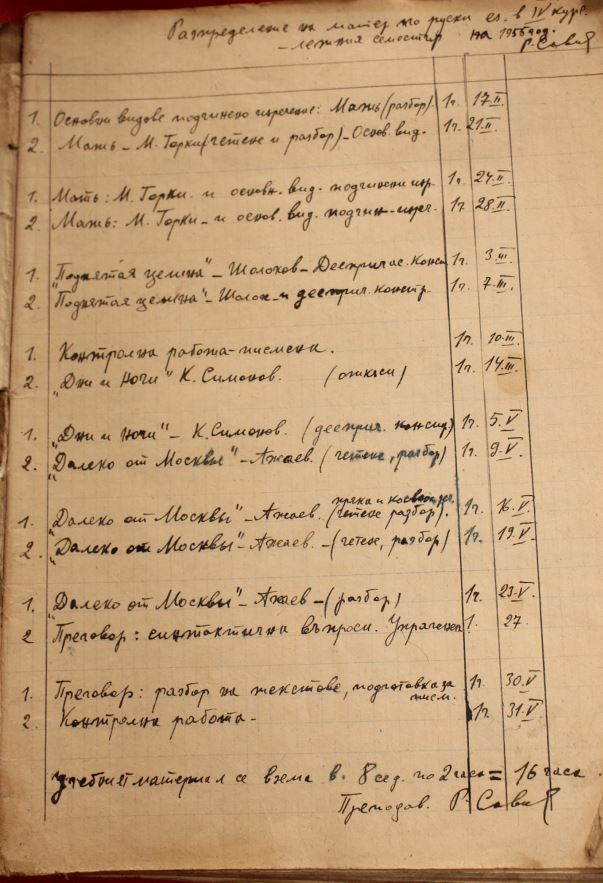 Разпределение на матер. по руски ез. в IV курс.
– летния семестър на 1956 год.
Р. Савов
1. Основни видове подчинено изречение: Мать (разбор). 1ч. 17.II.
2. Мать – М. Горки (четене и разбор) – Основ. вид. 1ч. 21.II.
1. Мать: М. Горки. и основн. вид. подчинени изр. 1ч. 24.II.
2. Мать: М. Горки – и основ. вид. подчин. изреч. 1ч. 28.II.
1. "Поднятая целина" – Шолохов – Деепричас. Констр. 1ч. 3.III.
2. "Поднятая целина" – Шолох – и дееприч. констр. 1ч. 7.III.
1. Контролна работа – писмена. 1ч. 10.III.
2. "Дни и ночи" К. Симонов. (откъси) 1ч. 14.III.
1. "Дни и ночи" – К. Симонов. (дееприч. констр.) 1ч. 5.V
2. "Далеко от Москвы" – Ажаев. (четене, разбор) 1ч. 9.V
пряка и косвена реч.
1. "Далеко от Москвы" – Ажаев. (четене разбор). 1ч. 16.V.
2. "Далеко от Москвы" – Ажаев. – (четене, разбор) 1ч. 19.V.
1. "Далеко от Москвы" – Ажаев – (разбор) 1ч. 23.V
2 Преговор: синтактични въпроси. Упражнен. 1. 27.
1. Преговор: разбор на текстове, подготовка за писм. 1ч. 30.V
2. Контролна работа – 1ч. 31.V
учебният материал се взема в 8 сед. по 2 часа = 16 часа
Преподав. Р. Савов